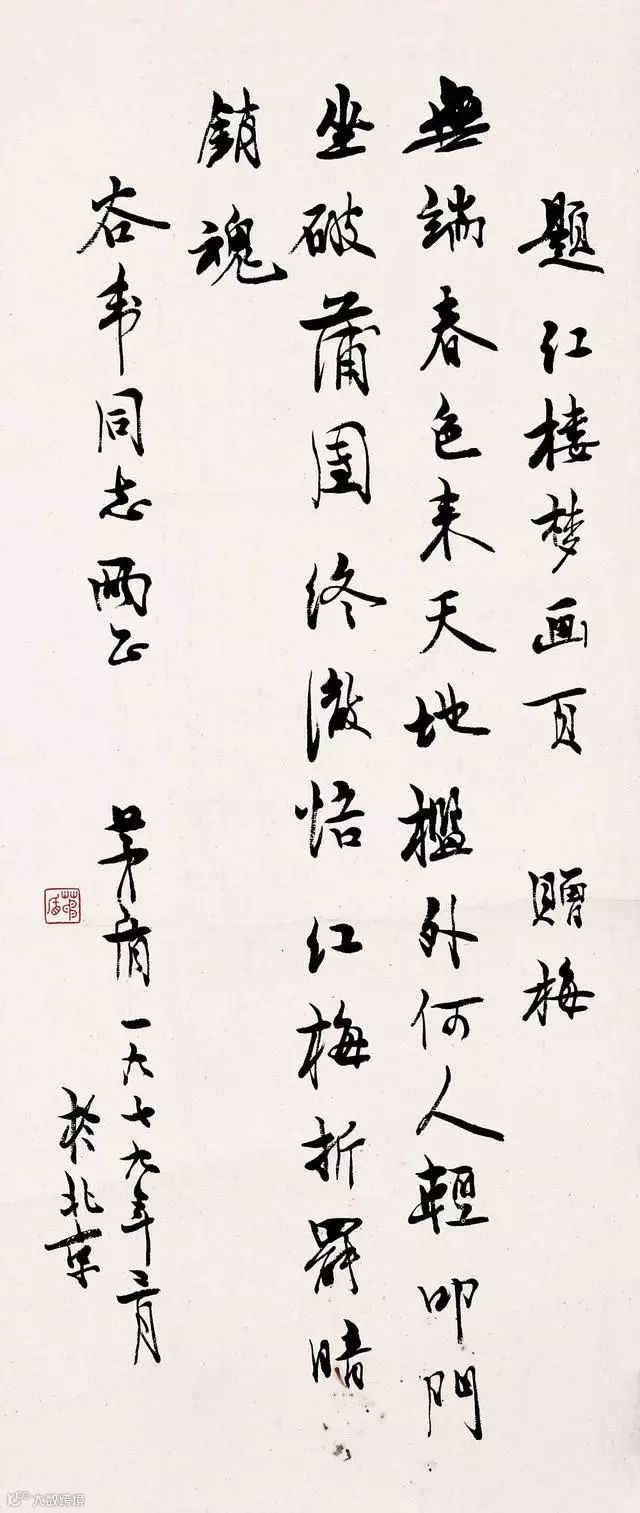 題红楼梦画页 贈梅
無端春色来天地檻外何人輕叩門
坐破蒲團终澈悟红梅折罷暗
銷魂
谷苇同志两正 茅盾一九七九年二月
於北京
茅盾
大数跨境